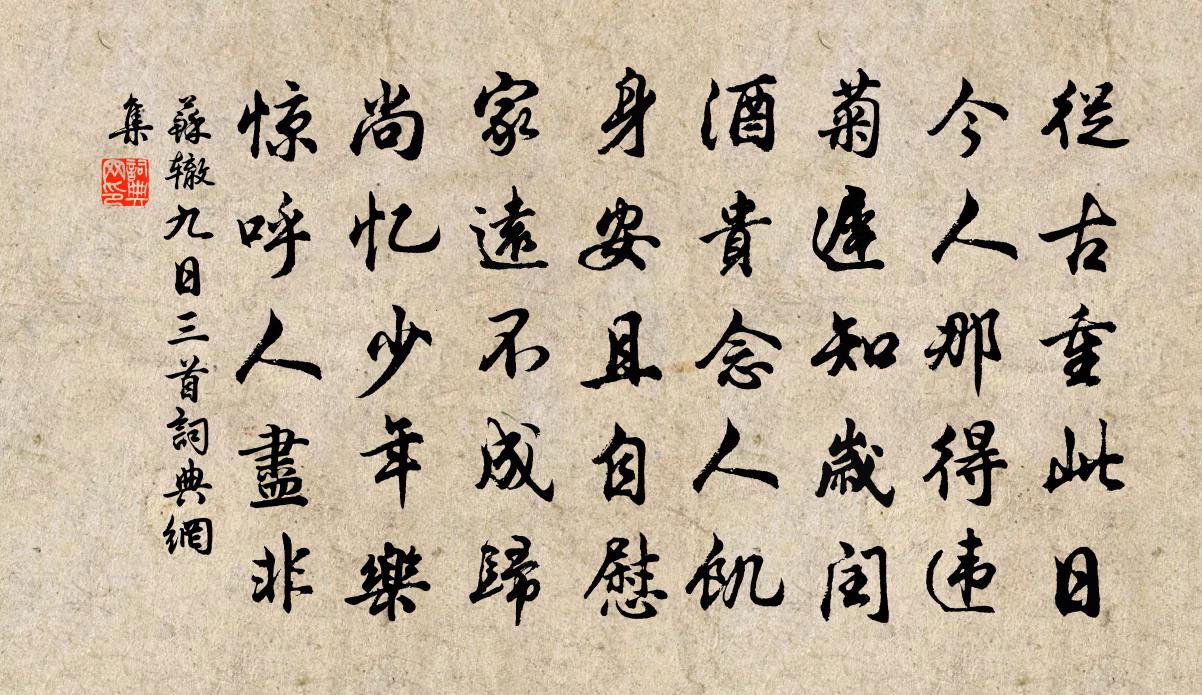 從古重此日
今人那得违
菊遲知歲闰
酒貴念人飢
身安且自慰
家遠不成歸
尚忆少年樂
惊呼人盡非
蘇辙九日三首詞典網
集
詞典
网印